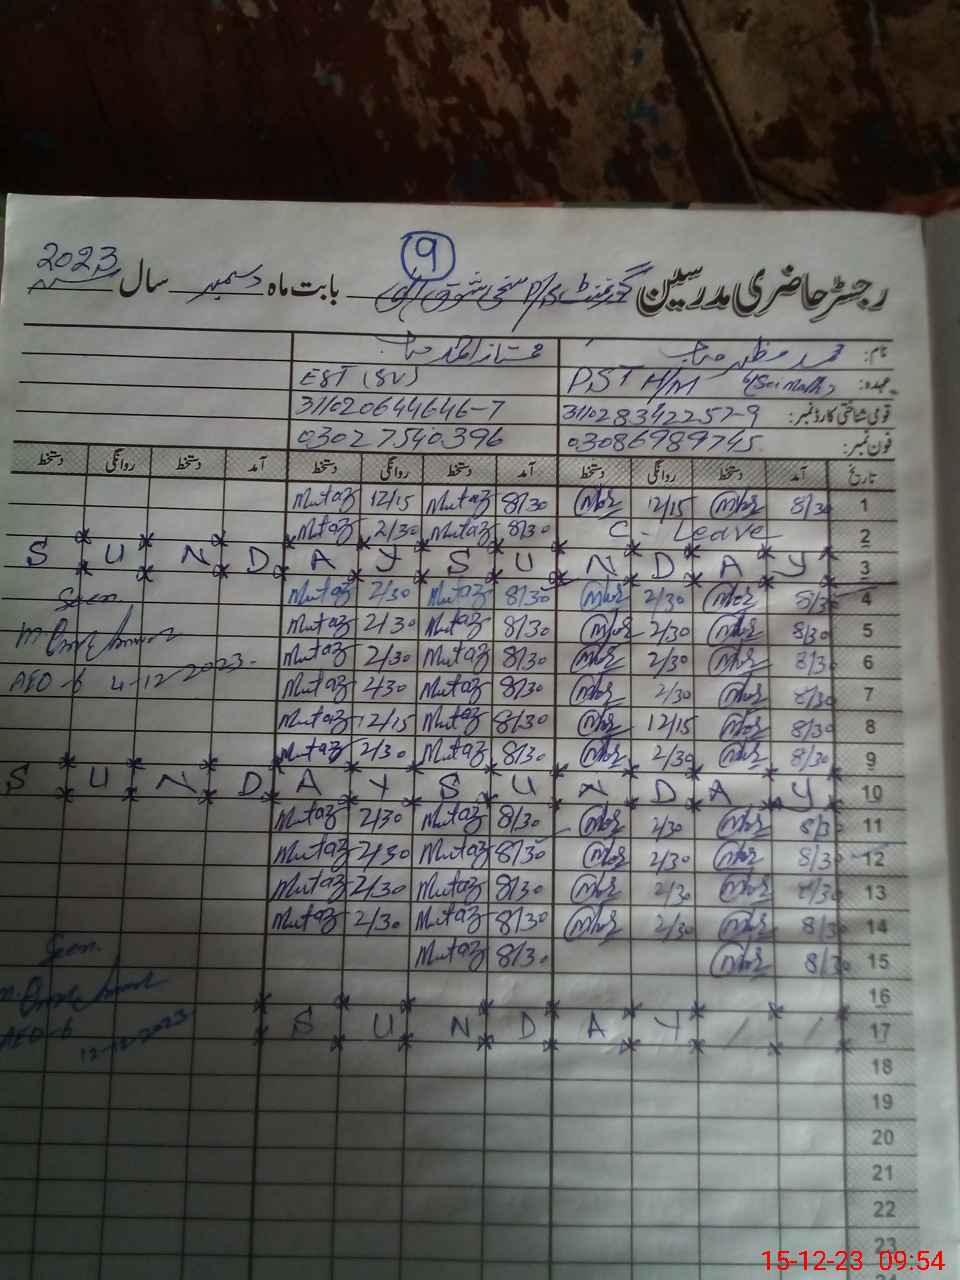 9
رجسٹر حاضری مدرسین گورنمنٹ P/S سخی شوق الٰہی بابت ماہ دسمبر سال 2023
نام: محمد مظہر صاحب ممتاز احمد صاحب
عہدہ: PST H/M (Sci Math) EST (SV)
قومی شناختی کارڈ نمبر: 311028342257-9 311020644646-7
فون نمبر: 03086989745 03027540396
تاریخ آمد دستخط روانگی دستخط آمد دستخط روانگی دستخط آمد دستخط روانگی دستخط
Mutaz 12/15 Mutaz 8/30 12/15 8/30 1
Mutaz 2/30 Mutaz 8/30 C- Leave 2
S U N D A Y S U N D A Y 3
Seen Mutaz 2/30 Mutaz 8/30 2/30 8/30 4
Mutaz 2/30 Mutaz 8/30 2/30 8/30 5
Mutaz 2/30 Mutaz 8/30 2/30 8/30 6
AEO-6 4-12-2023 Mutaz 2/30 Mutaz 8/30 2/30 8/30 7
Mutaz 12/15 Mutaz 8/30 12/15 8/30 8
Mutaz 2/30 Mutaz 8/30 2/30 8/30 9
S U N D A Y S U N D A Y 10
Mutaz 2/30 Mutaz 8/30 2/30 8/30 11
Mutaz 2/30 Mutaz 8/30 2/30 8/30 12
Mutaz 2/30 Mutaz 8/30 2/30 8/30 13
Mutaz 2/30 Mutaz 8/30 2/30 8/30 14
Seen Mutaz 8/30 8/30 15
16
AEO-6 S U N D A Y / / 17
12-12-2023
18
19
20
21
22
23
15-12-23 09:54